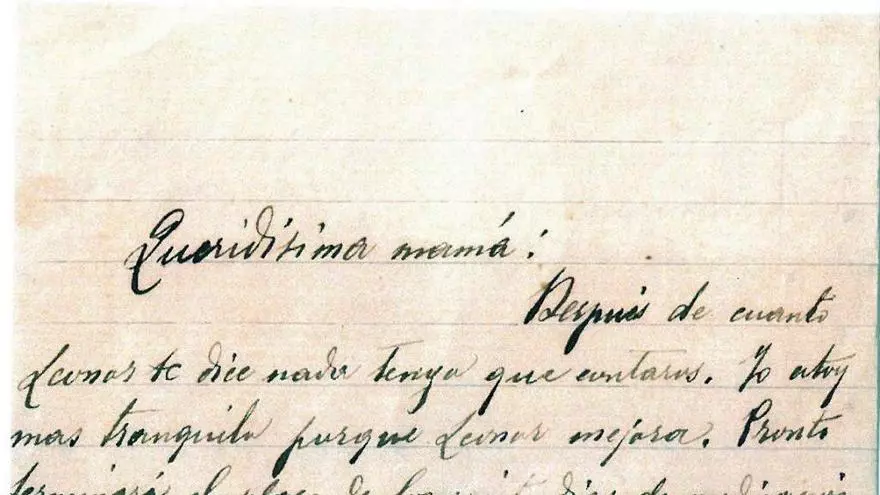 Queridísima mamá:
Después de cuanto
Leonor te dice nada tengo que contaros. Yo estoy
mas tranquilo porque Leonor mejora. Pronto
terminará el plazo de los